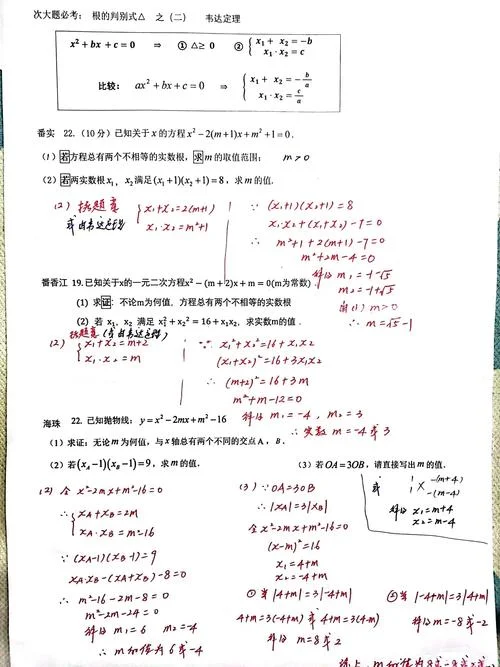 次大题必考： 根的判别式△ 之（二） 韦达定理
x²+bx+c=0 ⇒ ①△≥0 ② { x₁+x₂=-b
x₁·x₂=c
比较： ax²+bx+c=0 ⇒ { x₁+x₂=-b/a
x₁·x₂=c/a
番实 22.（10分）已知关于x的方程x²-2(m+1)x+m²+1=0.
（1）若方程总有两个不相等的实数根，求m的取值范围； m>0
（2）若两实数根x₁，x₂满足(x₁+1)(x₂+1)=8，求m的值.
(2) 据题意
或由韦达定理
{ x₁+x₂=2(m+1)
x₁·x₂=m²+1
∵ (x₁+1)(x₂+1)=8
x₁·x₂+(x₁+x₂)-7=0
∴ m²+1+2(m+1)-7=0
m²+2m-4=0
解得 m₁=-1-√5
m₂=-1+√5
由(1) m>0
∴ m=√5-1
番香江 19.已知关于x的一元二次方程x²-(m+2)x+m=0(m为常数)
(1) 求证：不论m为何值，方程总有两个不相等的实数根
(2) 若 x₁、x₂ 满足 x₁²+x₂²=16+x₁x₂，求实数m的值.
(2) 据题意(或由韦达定理)
{ x₁+x₂=m+2
x₁·x₂=m
∵ x₁²+x₂²=16+x₁x₂
(x₁+x₂)²=16+3x₁x₂
∴ (m+2)²=16+3m
m²+m-12=0
解得 m₁=-4，m₂=3
∴ 实数 m=-4或3
海珠 22. 已知抛物线：y=x²-2mx+m²-16
（1）求证：无论m为何值，与x轴总有两个不同的交点A，B.
（2）若(x_A-1)(x_B-1)=9，求m的值.
（3）若OA=3OB，请直接写出m的值.
(2) 令 x²-2mx+m²-16=0
∴ { x_A+x_B=2m
x_A·x_B=m²-16
∵ (x_A-1)(x_B-1)=9
x_A·x_B-(x_A+x_B)-8=0
∴ m²-16-2m-8=0
m²-2m-24=0
解得 m₁=6 m₂=-4
∴ m的值为6或-4
(3) ∵OA=3OB
∴ |x_A|=3|x_B|
令 x²-2mx+m²-16=0
(x-m)²=16
x₁=4+m
x₂=-4+m
或 1 -(m+4)
1 -(m-4)
解得 x₁=m+4
x₂=m-4
①当 |4+m|=3|-4+m|
4+m=3(-4+m) 或 4+m=3(4-m)
解得 m=8或2
②当 |-4+m|=3|4+m|
解得 m=-8或-2